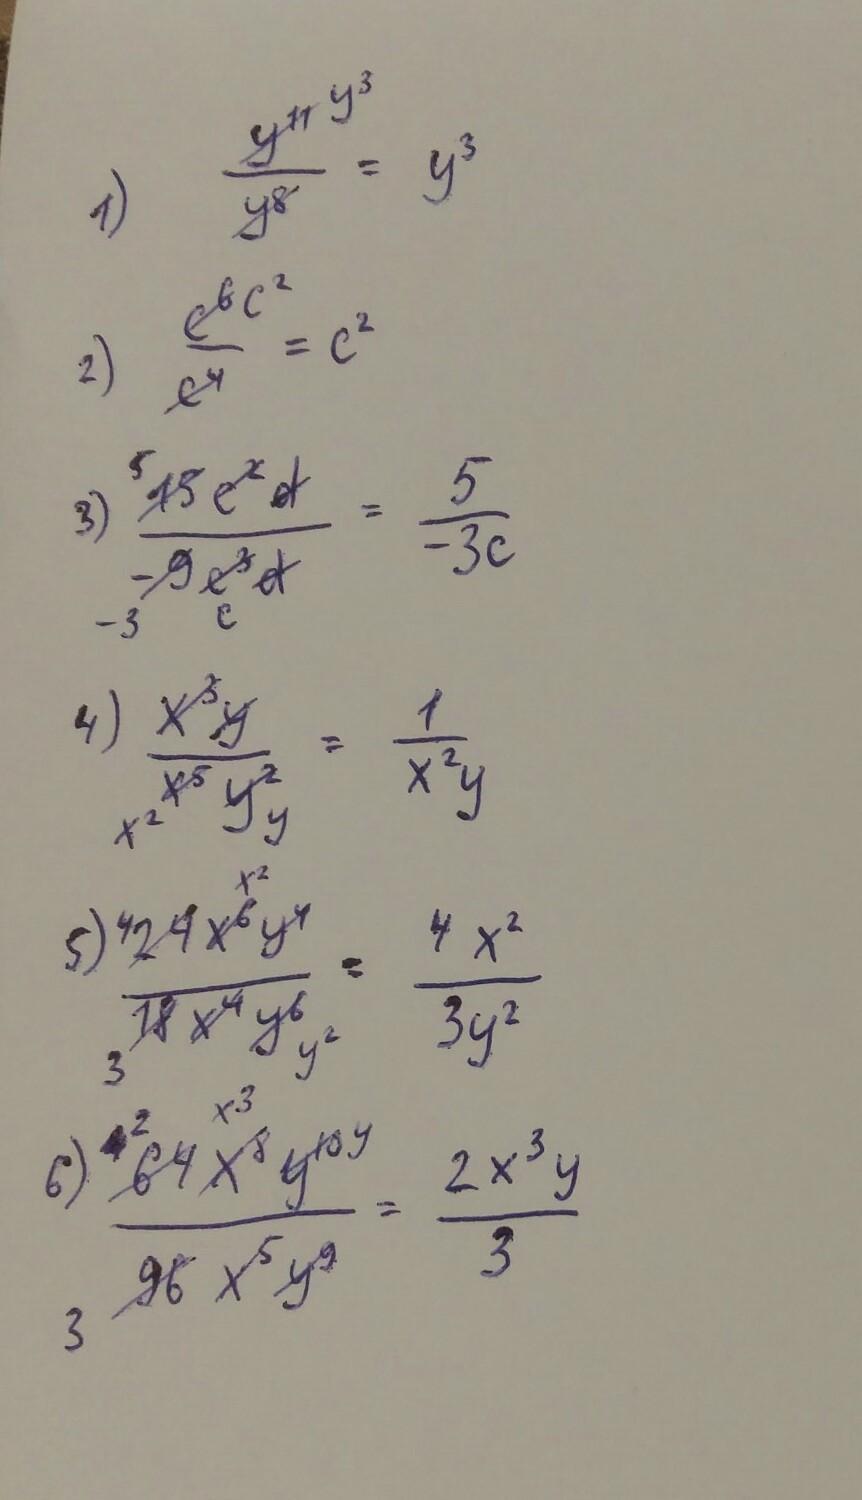 1) y¹¹ y³ / y⁸ = y³
2) c⁶ c² / c⁴ = c²
3) 5 15 c² d / -9 c³ d = 5 / -3c
-3 c
4) x³ y / x⁵ y² = 1 / x² y
x² y
x²
5) 4 24 x⁶ y⁴ / 18 x⁴ y⁶ = 4 x² / 3y²
3 y²
x³
6) 2 64 x⁸ y¹⁰ y / 96 x⁵ y⁹ = 2 x³ y / 3
3